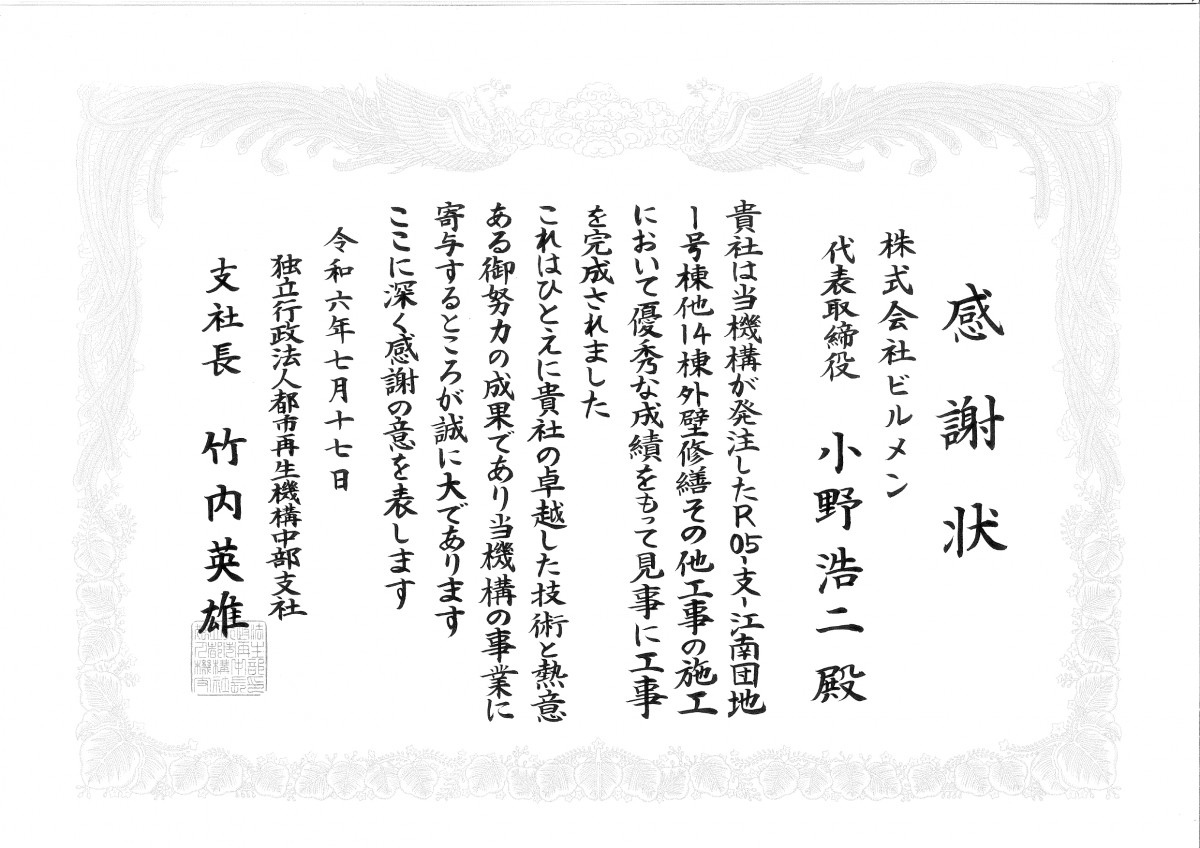 感謝状
株式会社ビルメン
代表取締役 小野浩二殿
貴社は当機構が発注したR05-支-江南団地
1号棟他14棟外壁修繕その他工事の施工
において優秀な成績をもって見事に工事
を完成されました
これはひとえに貴社の卓越した技術と熱意
ある御努力の成果であり当機構の事業に
寄与するところが誠に大であります
ここに深く感謝の意を表します
令和六年七月十七日
独立行政法人都市再生機構中部支社
支社長 竹内英雄